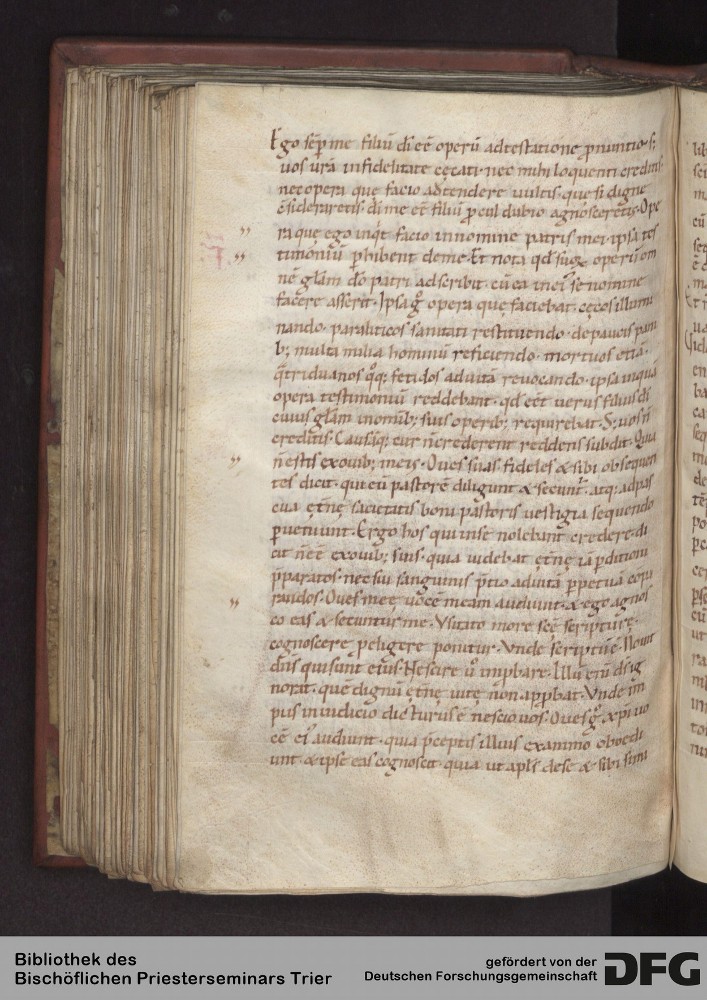 Ego sēp me filiū dī eē operū adtestatione pronuntio. S;
uos urā infidelitate cęcati. nec mihi loquenti creditis.
nec opera que facio adtendere uultis. que si digne
c̄sideraretis. dī me eē filiū procul dubio agnosceretis. Ope
ra que ego inq̇t facio in nomine patris mei. ipsa tes
timoniū phibent de me. Et nota qd suǫ operū om
nē glam dō patri adscribit. cū ea in ei se nomine
facere asserit. Ipsa g opera que faciebat. cęcos illumi
nando. paraliticos sanitati restituendo. de paucis pani
b; multa milia hominū reficiendo. mortuos etiā.
q̄triduanos q̇q; fetidos ad uitā reuocando. ipsa inquā
opera testimoniū reddebant. qd eēt uerus filius dī
cuius glam in omib; suis operib; requirebat. S; uos n̄
creditis. Causāq; cur n̄ crederent reddens subdit. Quia
n̄ estis ex ouib; meis. Oues suas fideles & sibi obsequen
tes dicit. qui eū pastorē diligunt & secunt̄. atq; ad pas
cua ęt̄nę sacietatis boni pastoris uestigia sequendo
pueniunt. Ergo hos qui in se nolebant credere. di
cit n̄ eē ex ouib; suis. quia uidebat ęt̄nę iā pditioni
p̄paratos. nec sui sanguinis p̄tio ad uitā ppetuā cōpa
randos. Oues meę uocē meam audiunt. & ego agnos
co eas & secuntur me. Usitato more scē scripturę.
cognoscere p eligere ponitur. Unde scriptū ē. Nouit
dn̄s qui sunt eius. Nescire u̇ improbare. Illū enī dn̄s ig
norat. quē dignū ęt̄nę uitę non approbat. Unde im
pus in iudicio dicturus ē nescio uos. Oues g xp̄i uo
cē ei audiunt. quia p̄ceptis illius ex animo obœdi
unt. & ipse eas cognoscit. quia ut apls dese & sibi simi
Bibliothek des
Bischöflichen Priesterseminars Trier
gefördert von der
Deutschen Forschungsgemeinschaft
DFG